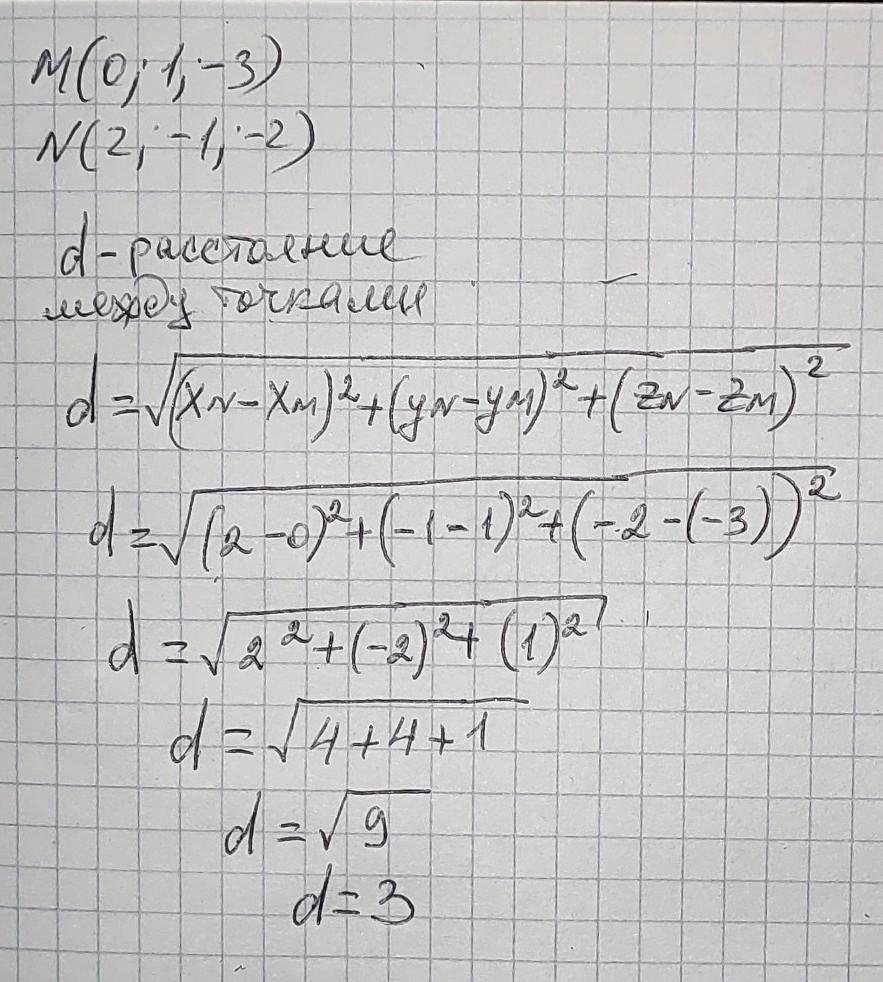 M(0; 1; -3)
N(2; -1; -2)
d - расстояние
между точками
d = √((xN - xM)² + (yN - yM)² + (zN - zM)²)
d = √((2 - 0)² + (-1 - 1)² + (-2 - (-3))²)
d = √(2² + (-2)² + (1)²)
d = √(4 + 4 + 1)
d = √9
d = 3